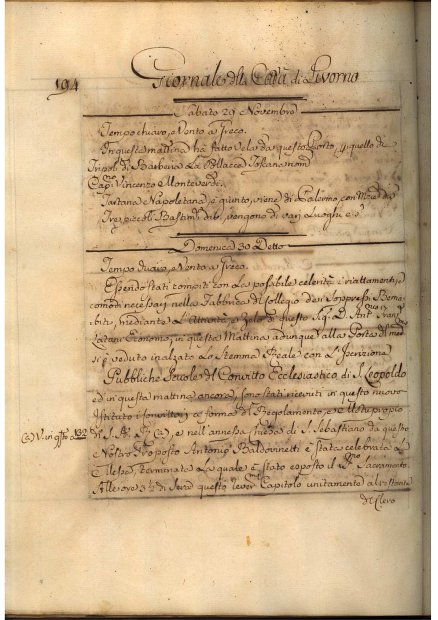 194
Giornale della Città di Livorno
Sabato 29 Novembre
Tempo chiaro, e Vento a Greco.
In questa mattina ha fatto vela da questo Porto p. quello di
Tripoli di Barberia La Pollacca Toscana nom.
Cap. Vincenzo Monteverde.
Tartana Napoletana è giunto, viene di Palermo, con
Tre piccoli Bastim. vengono di varj Luoghi e
Domenica 30 Detto
Tempo e Vento a Greco.
Essendo stati compiti con La possibile celerità i riattamenti, e
comodi necessarj nella Fabbrica di Collegio de' Soppressi Barna-
biti, mediante L'Attività e Zelo di questo Sig. D. Ant.
Economo; in questa Mattina adunque alla Porta di med.
si è veduto inalzato Lo Stemma Reale con L'Iscrizione
Pubbliche Scuole del Convitto Ecclesiastico di S. Leopoldo
ed in questa mattina ancora, sono stati ricevuti in questo nuovo
Istituto i a forma di Regolamento, e
di S. A. R. (a), e nell'annessa Chiesa di S. Sebastiano da questo
(a) V. in q.sto a 132
Nostro Proposto Antonio Baldovinetti è stata celebrata La
terminata La quale è stato esposto il Sacramento
Alle ore 3 ½ di Sera questo Capitolo unitamente al restante
di Clero